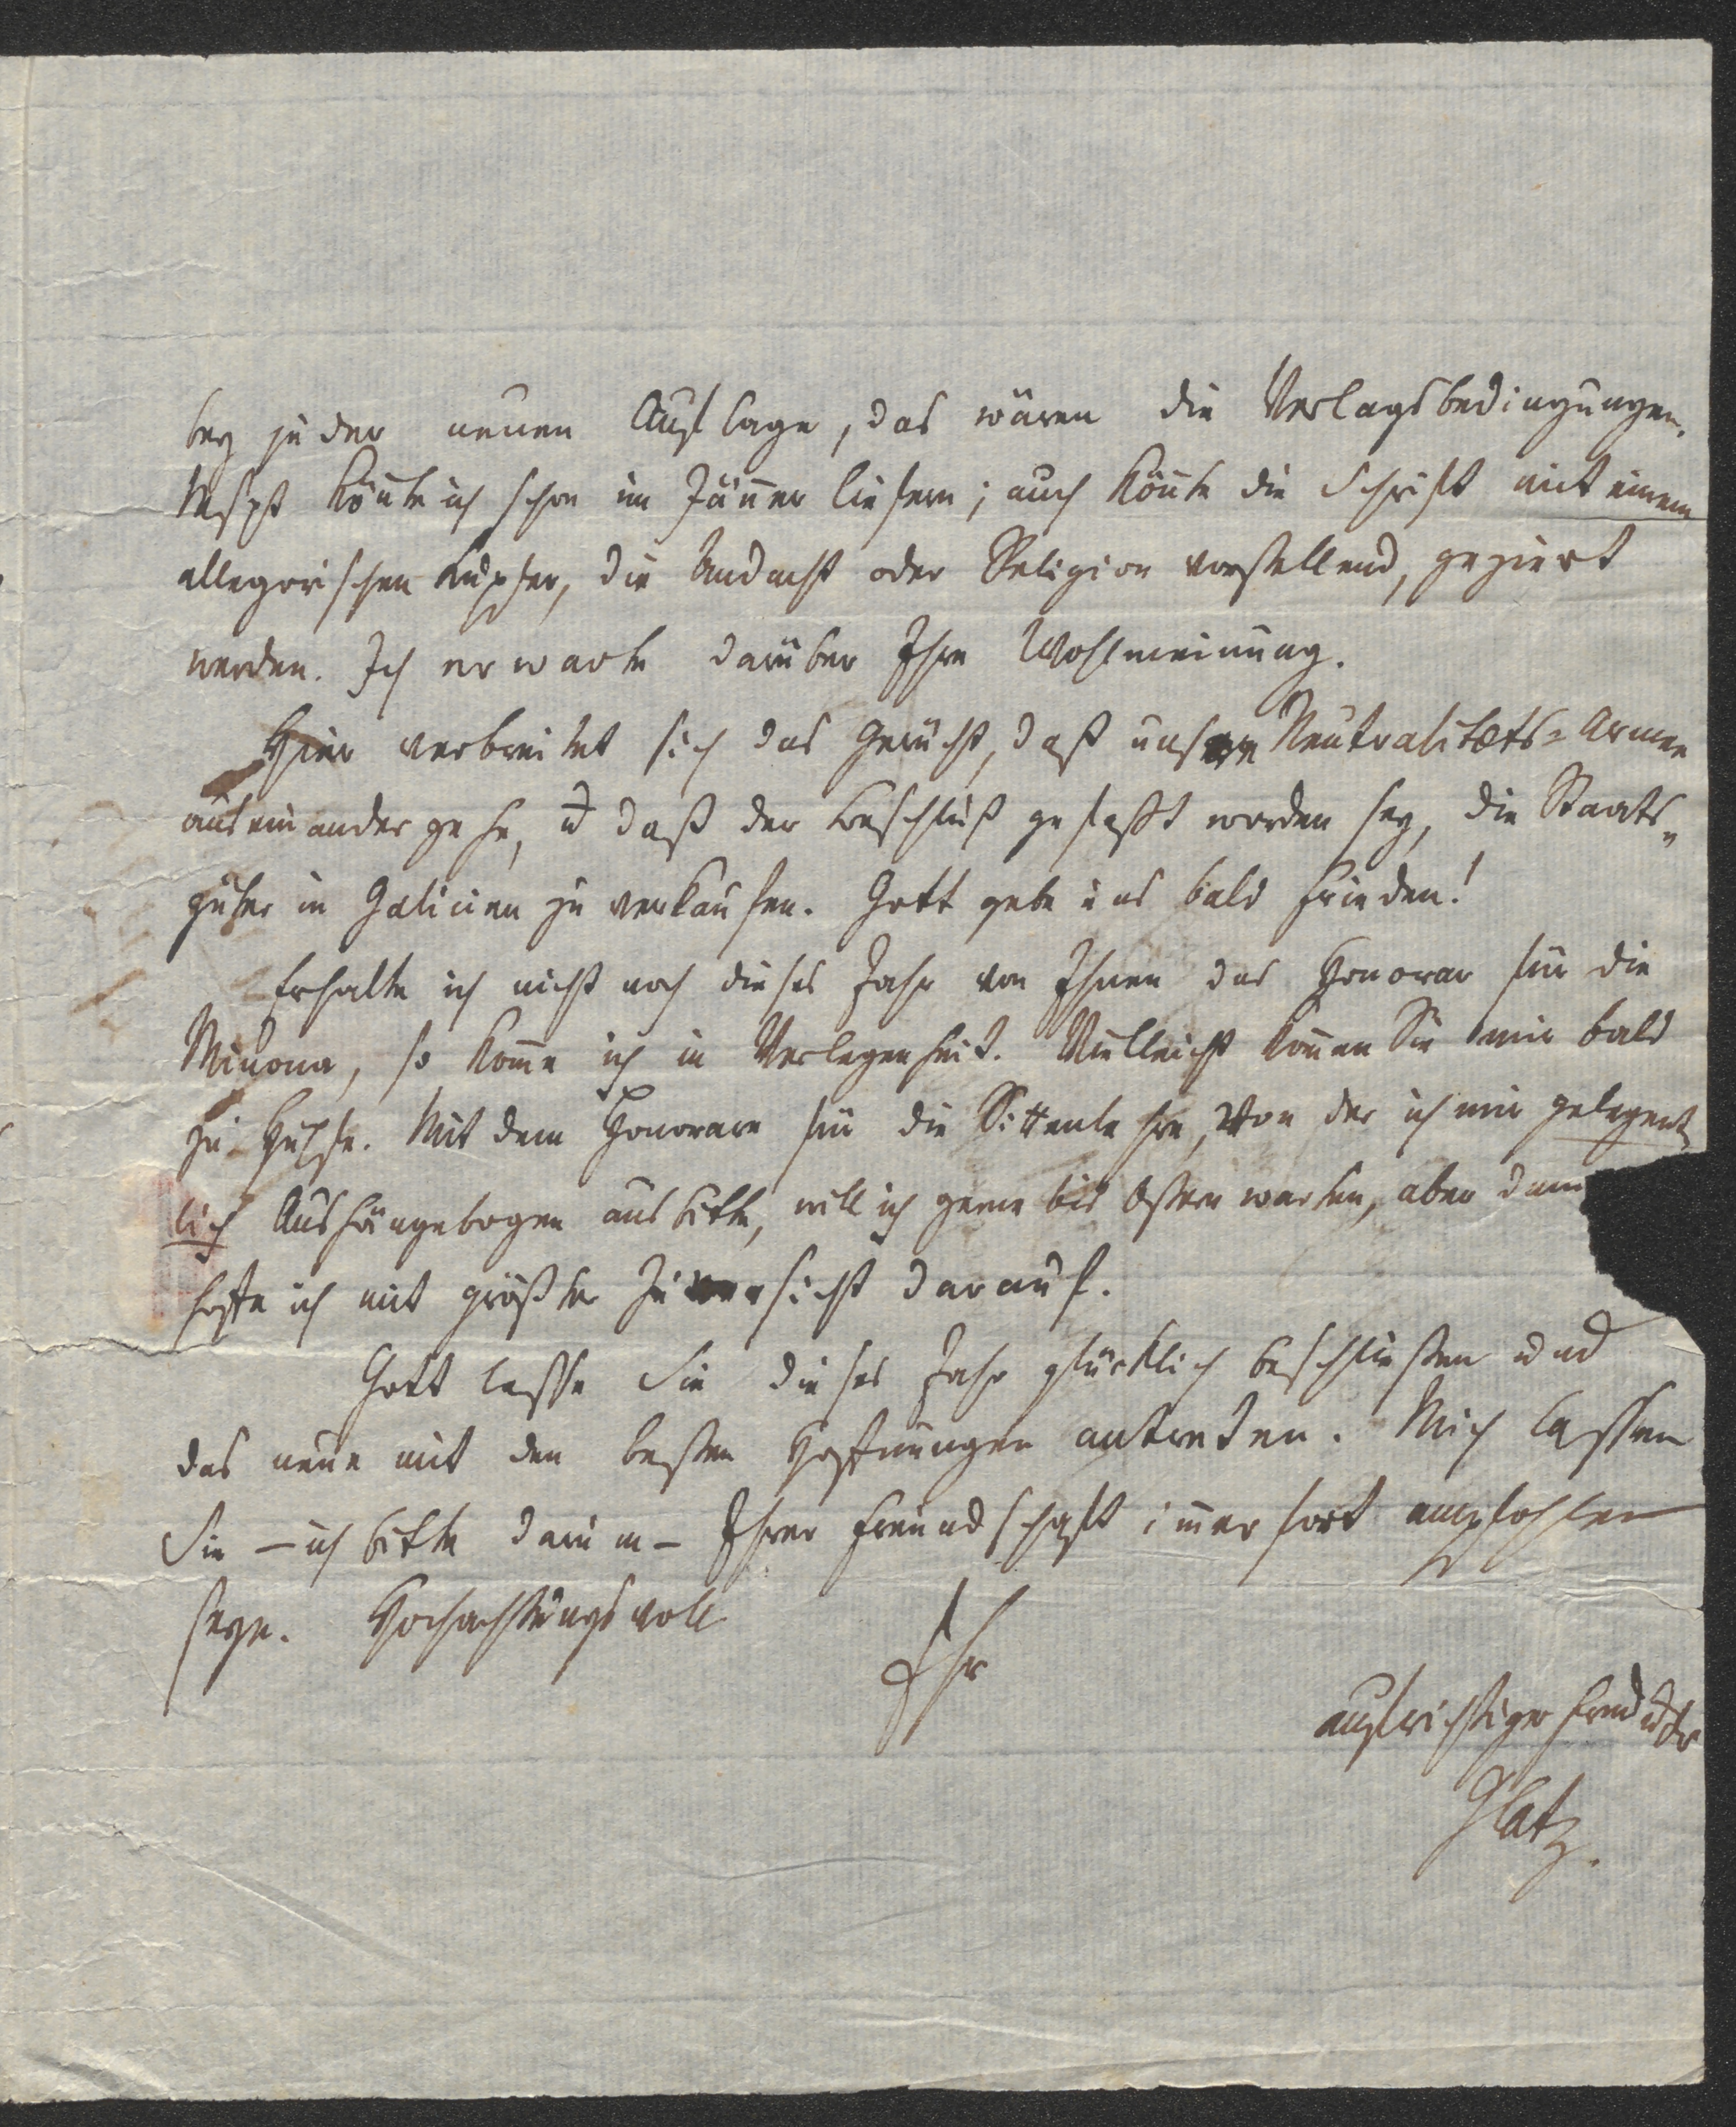 bey jeder neuen Auflage, das wären die Verlagsbedingungen.
Mspt könte ich schon im Jäner liefern; auch könte die Schrift mit einem
allegorischen Kupfer, die Andacht oder Religion vorstellend, geziert
werden. Ich erwarte darüber Ihre Wohlmeinung.
Hier verbreitet sich das Gerücht, daß unsere Neutralitæts=Armee
auseinander gehe, u daß der Beschluß gefaßt worden sey, die Staats=
güter in Galicien zu verkaufen. Gott gebe uns bald Frieden!
Erhalte ich nicht noch dieses Jahr von Ihnen das Honorar für die
Minona, so kome ich in Verlegenheit. Vielleicht könen Sie mir bald
zu Hülfe. Mit dem Honorare für die Sittenlehre, von der ich mir gelegent=
lich Aushängebogen ausbitte, will ich gerne bis Ostern warten, aber dann
hoffe ich mit größter Zuversicht darauf.
Gott lasse Sie dieses Jahr glücklich beschließen und
das neue mit den besten Hoffnungen antreten. Mich lassen
Sie – ich bitte darum – Ihrer Freundschaft imerfort empfohlen
seyn. Hochachtungsvoll
Ihr
aufrichtiger
Glatz.